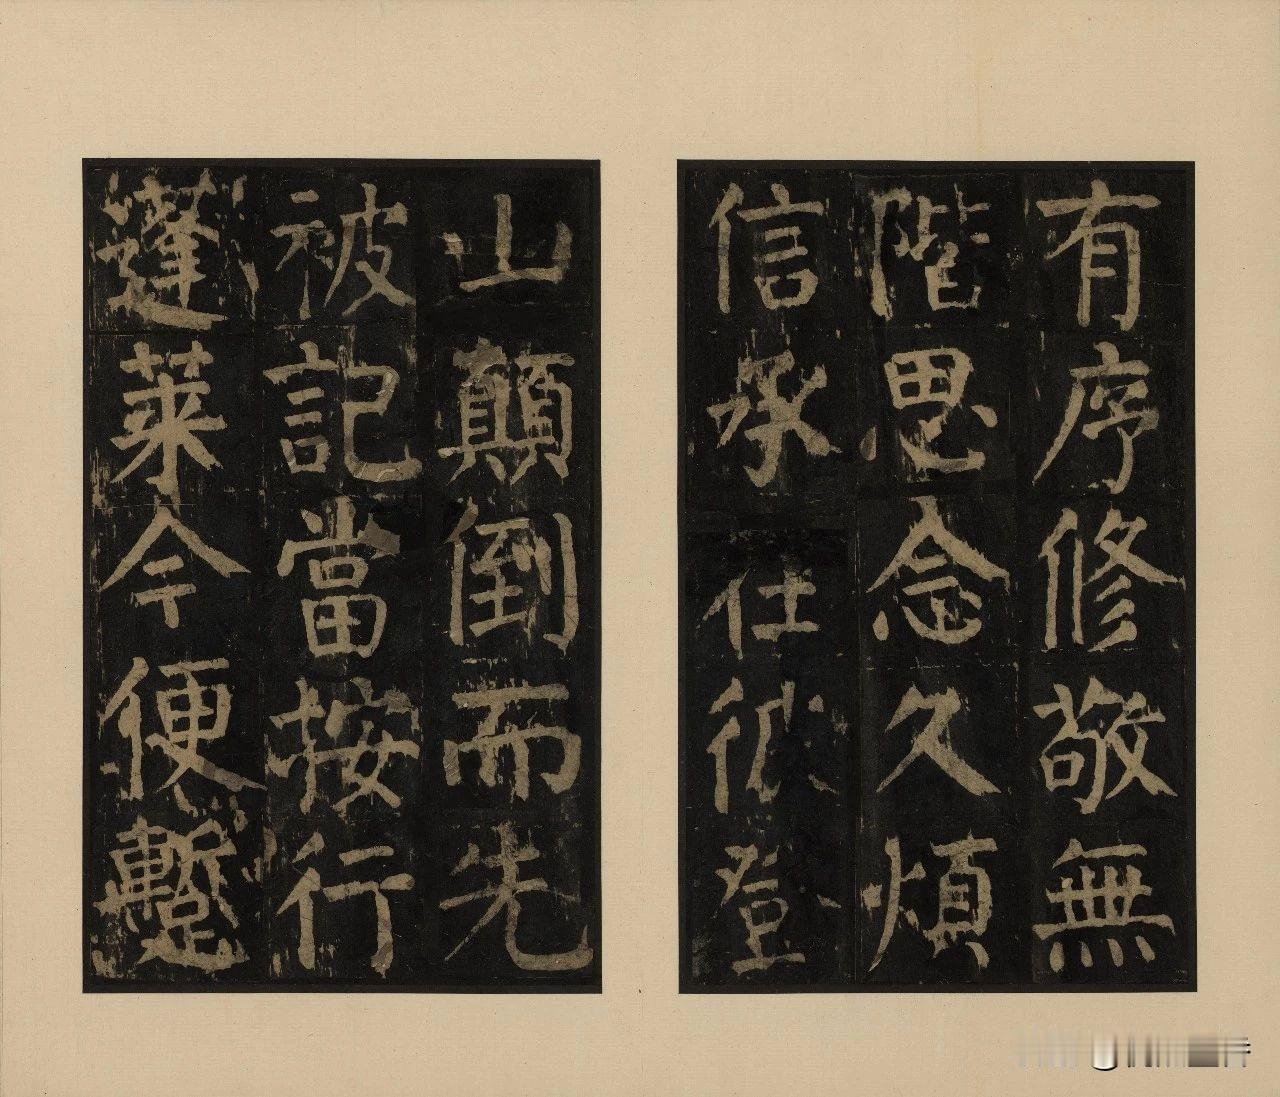 有序修敬無
階思念久煩
信承任彼登
山顛倒而先
被記當按行
蓬萊今便蹔